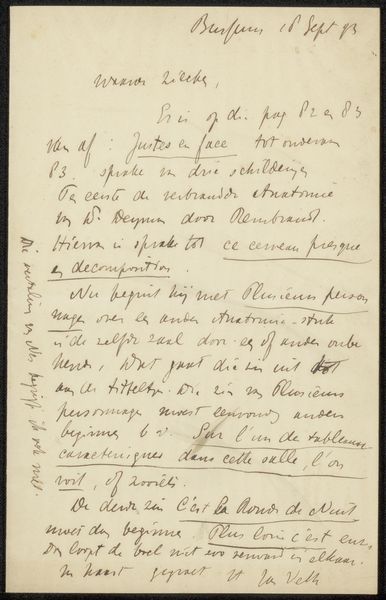 Bussum 18 Sept 93
Waarde Zilcken,
Er is op die pag 82 en 83
van af: Justes en face tot onderaan
83. sprake van drie schilderijen
Ten eerste de verbrande Anatomie
van Dr. Deyman door Rembrandt.
Hiervan is sprake tot ce cerveau presque
en decomposition.
Nu begint hij met Plusieurs person
nages over een ander Anatomie-stuk
in de zelfde zaal door een of ander onbe
kende, Wat gaat die zin uit
van de titteltjes. Die zin van Plusieurs
personnages moest eenvoudig anders
beginnen b.v. Sur l'un de tableaux
caracteriques dans cette salle, l'on
voit, of zooiets.
De derde zin C'est la Ronde de Nuit
moet dan beginnen. Plus loin c'est enz.
Dan loopt de boel niet zoo verward in elkaar.
In haast gegroet Jan Veth
Die vertaling van Nes begrijp ik ook niet.